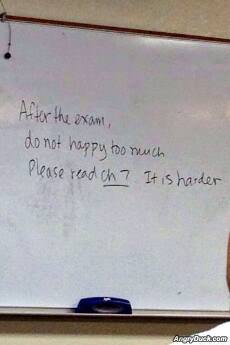 After the exam,
do not happy too much
Please read ch 7 It is harder
AngryDuck.com